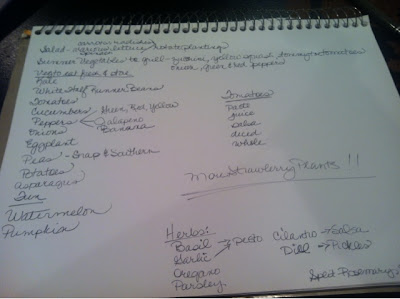 various radishes
Salad - various lettuces, potato planting
Summer Vegetables to grill - zucchini, yellow squash, tommytoe tomatoes
onion, sweet & hot peppers
Veg to eat, freeze & store
Kale
White Half Runner Beans
Tomatoes
Cucumbers
Peppers Green, Red, Yellow
Jalapeno
Banana
Onions
Eggplant
Peas - Snap & Southern
Potatoes
Asparagus
Fun
Watermelon
Pumpkin
Tomatoes
pesto
juice
salsa
diced
whole
More Strawberry Plants !!
Herbs:
Basil → Pesto
Garlic
Oregano
Parsley
Cilantro → Salsa
Dill → Pickles
Split Rosemary